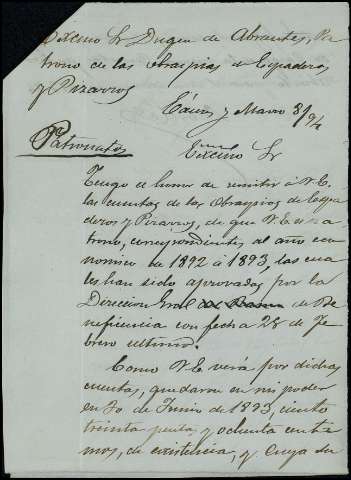 Excmo Sr Duque de Abrantes, Pa-
trono de las obras pias de Espaderos
y Pizarros
Cáceres y Marzo 8/94
Patronatos
Excmo Sr
Tengo el honor de remitir á V.E.
las cuentas de las Obraspias de Espa
deros y Pizarros, de que V.E. es pa-
trono, correspondientes al año eco-
nómico de 1892 á 1893, las cua
les han sido aprovadas por la
Direccion Gral de Be-
neficencia con fecha 28 de Fe
brero ultimo.
Como V.E. verá por dichas
cuentas, quedaron en mi poder
en 30 de Junio de 1893, ciento
treinta pesetas y ochenta centi
mos, de existencia, y cuya su